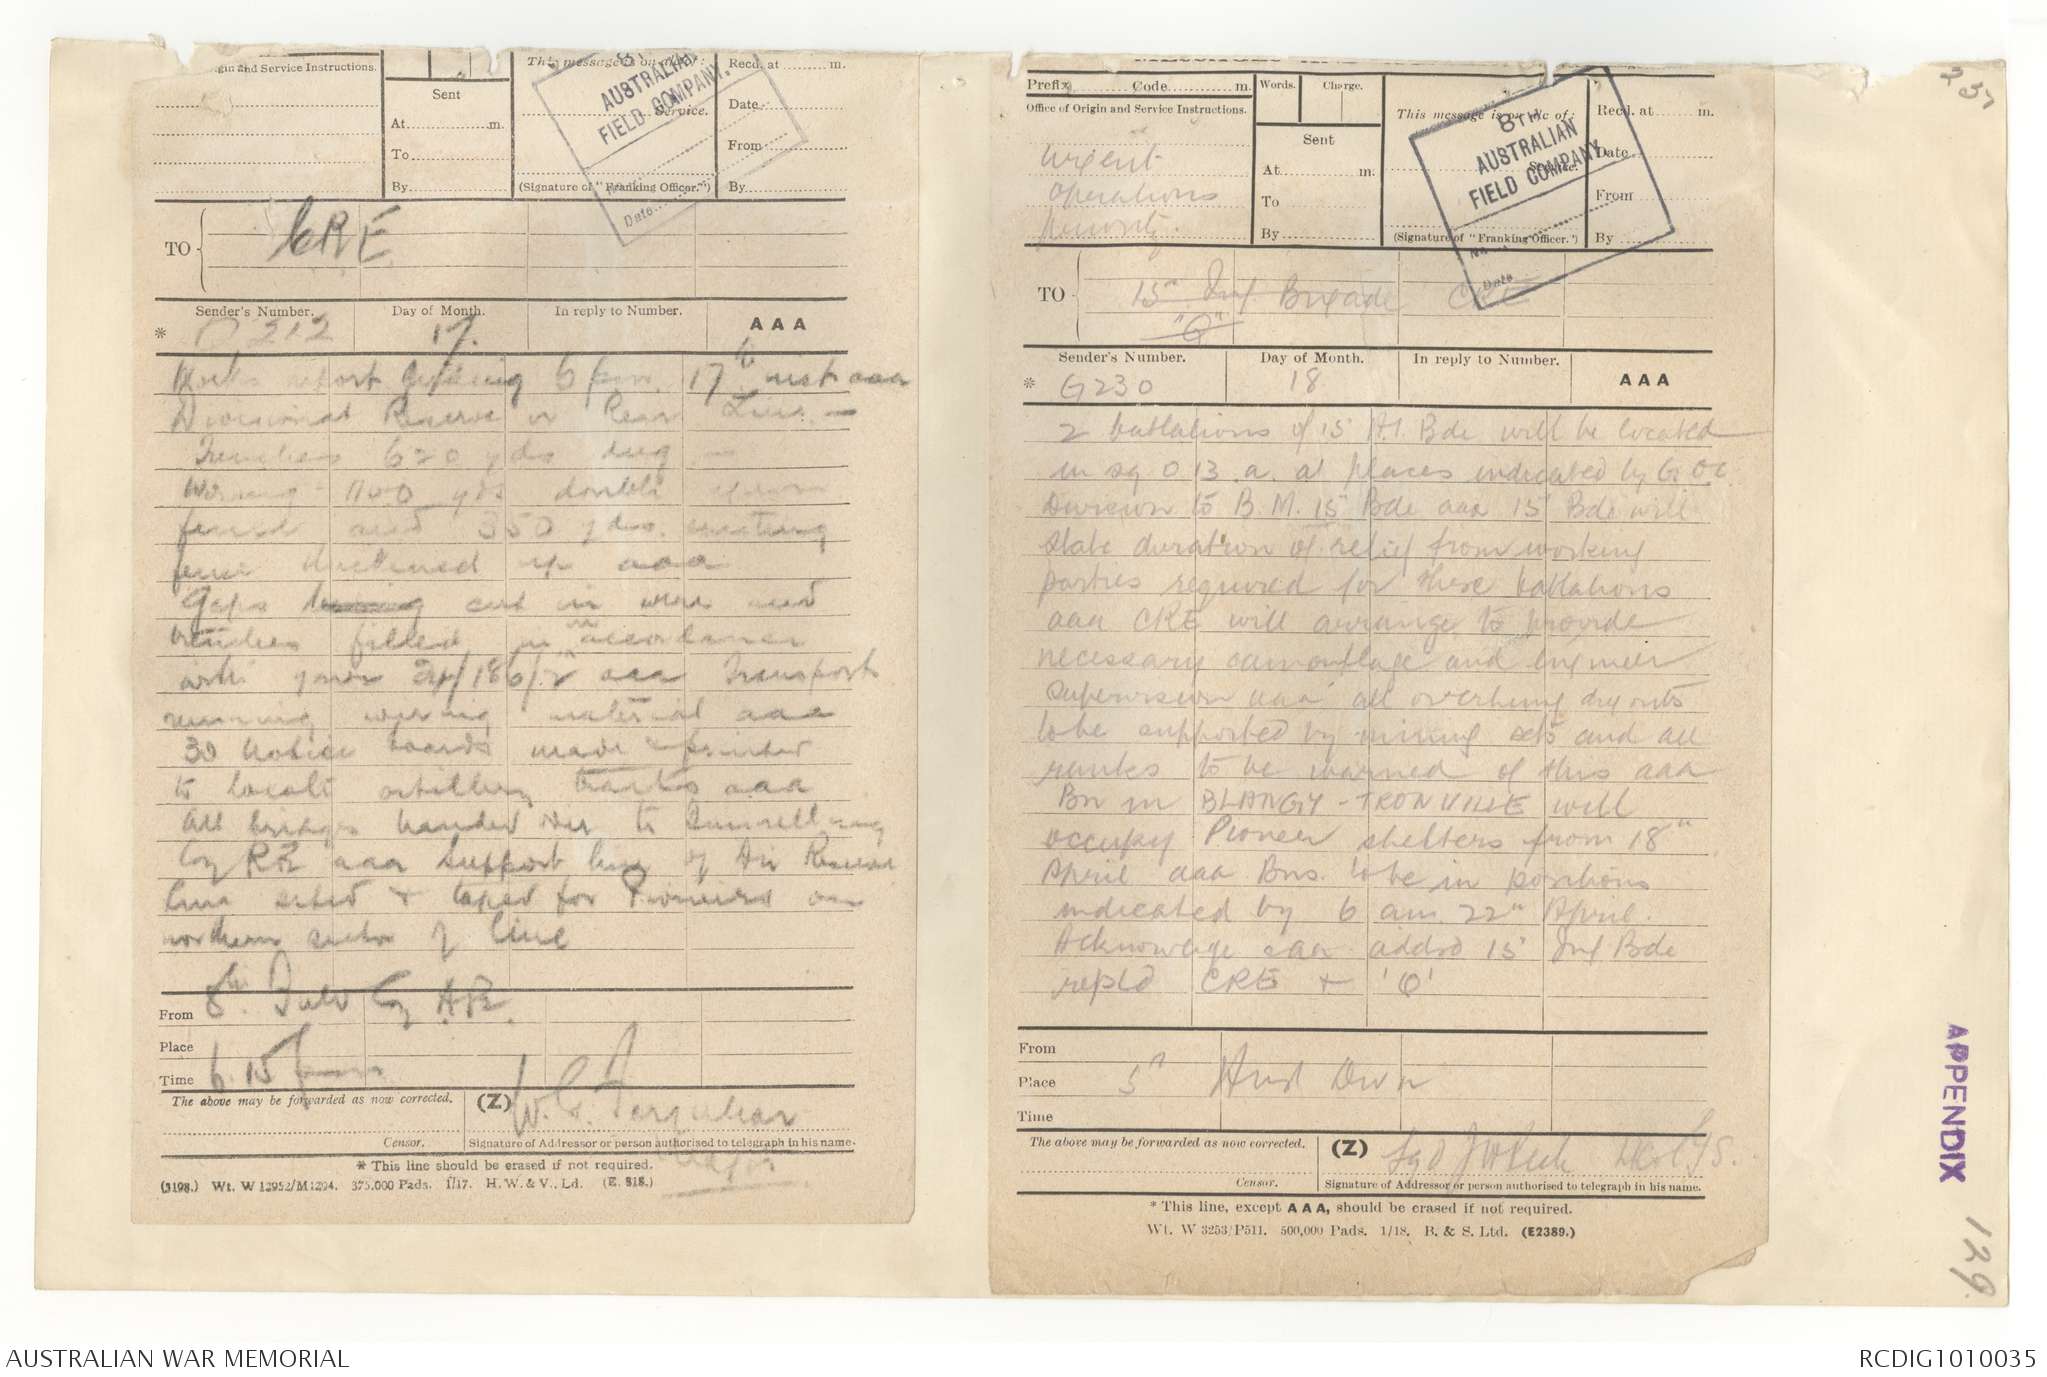 Origin and Service Instructions.
Sent
At ........ m.
To
By
This message is on a/c of:
Service.
(Signature of "Franking Officer.")
Recd. at ........ m.
Date
From
By
8TH
AUSTRALIAN
FIELD COMPANY.
Date
TO
CRE
Sender's Number.
Day of Month.
In reply to Number.
AAA
* 212
17
Works report ending 6 pm. 17th inst aaa
Divisional Reserve or Rear Line. —
Trenches 620 yds dug —
Wiring - 1100 yds double apron
fence and 350 yds. existing
fence thickened up aaa
Gaps cut in wire and
trenches filled in in accordance
with your 24/186/2 aaa Transport
running wiring material aaa
30 notice boards made & printed
to locate artillery tracks aaa
All bridges handed over to Tunnelling
Coy RE aaa Support line of Div Reserve
line sited & taped for Pioneers on
northern sector of line
From 8th Field Coy A.E.
Place
Time 6.15 pm
The above may be forwarded as now corrected.
(Z) W.C. Farquhar
Censor.
Signature of Addressor or person authorised to telegraph in his name.
Major
* This line should be erased if not required.
(3198.) Wt. W 12952/M1294. 375,000 Pads. 1/17. H. W. & V., Ld. (E. 818.)
237
Prefix ........ Code ........ m.
Words.
Charge.
Office of Origin and Service Instructions.
Urgent
Operations
Priority.
Sent
At ........ m.
To
By
This message is on a/c of:
Service.
(Signature of "Franking Officer.")
Recd. at ........ m.
Date
From
By
8TH
AUSTRALIAN
FIELD COMPANY
Date
TO
15" Inf. Brigade CRE
"Q"
Sender's Number.
Day of Month.
In reply to Number.
AAA
* G230
18
2 battalions of 15 A.I. Bde will be located
in sq O 13.a. at places indicated by G.O.C.
Division to B.M. 15" Bde aaa 15" Bde will
state duration of relief from working
parties required for these battalions
aaa CRE will arrange to provide
necessary camouflage and engineer
supervision aaa all overhung dug outs
to be supported by mining sets and all
ranks to be warned of this aaa
Bn in BLANGY-TRONVILLE will
occupy Pioneer shelters from 18"
April aaa Bns. to be in positions
indicated by 6 am. 22" April.
Acknowledge aaa addsd 15" Inf Bde
reptd CRE + 'Q'
From
Place 5" Aust Divn
Time
The above may be forwarded as now corrected.
(Z) Sgd
Censor.
Signature of Addressor or person authorised to telegraph in his name.
* This line, except AAA, should be erased if not required.
Wt. W 3253/P511. 500,000 Pads. 1/18. B. & S. Ltd. (E2389.)
APPENDIX
129.
AUSTRALIAN WAR MEMORIAL
RCDIG1010035